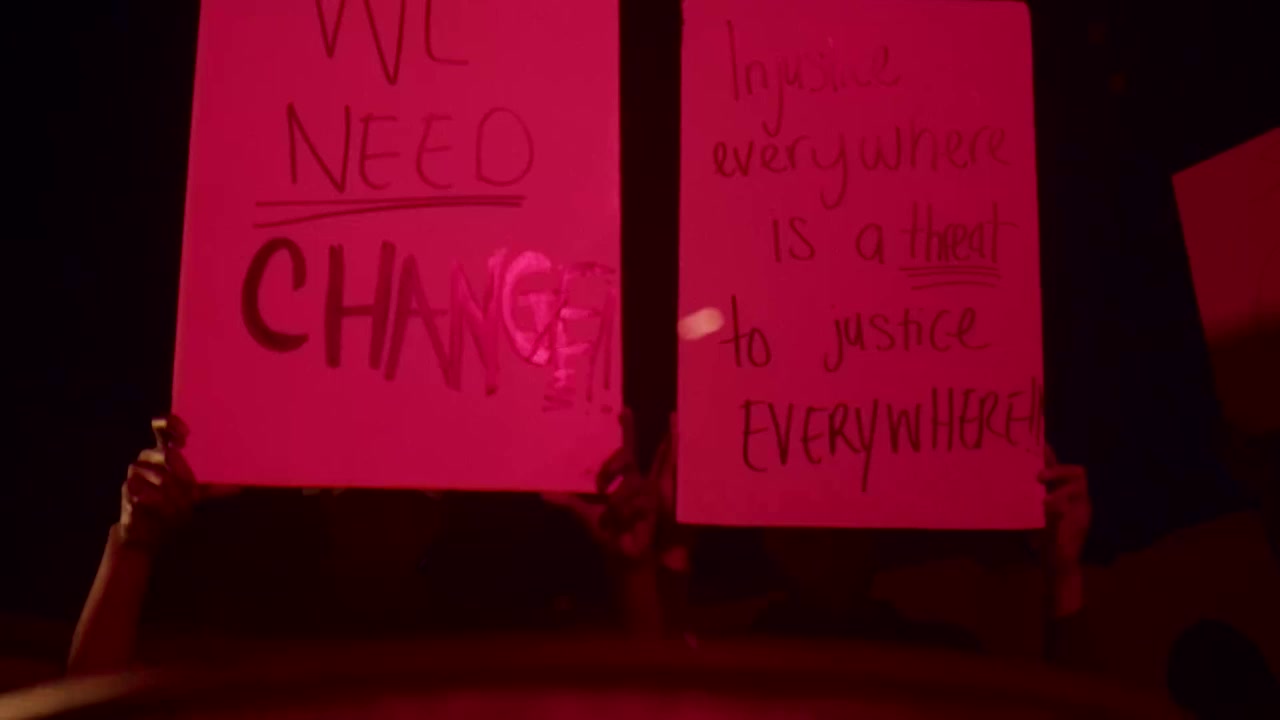 WE
NEED
CHANGE!
Injustice
everywhere
is a threat
to justice
EVERYWHERE!!